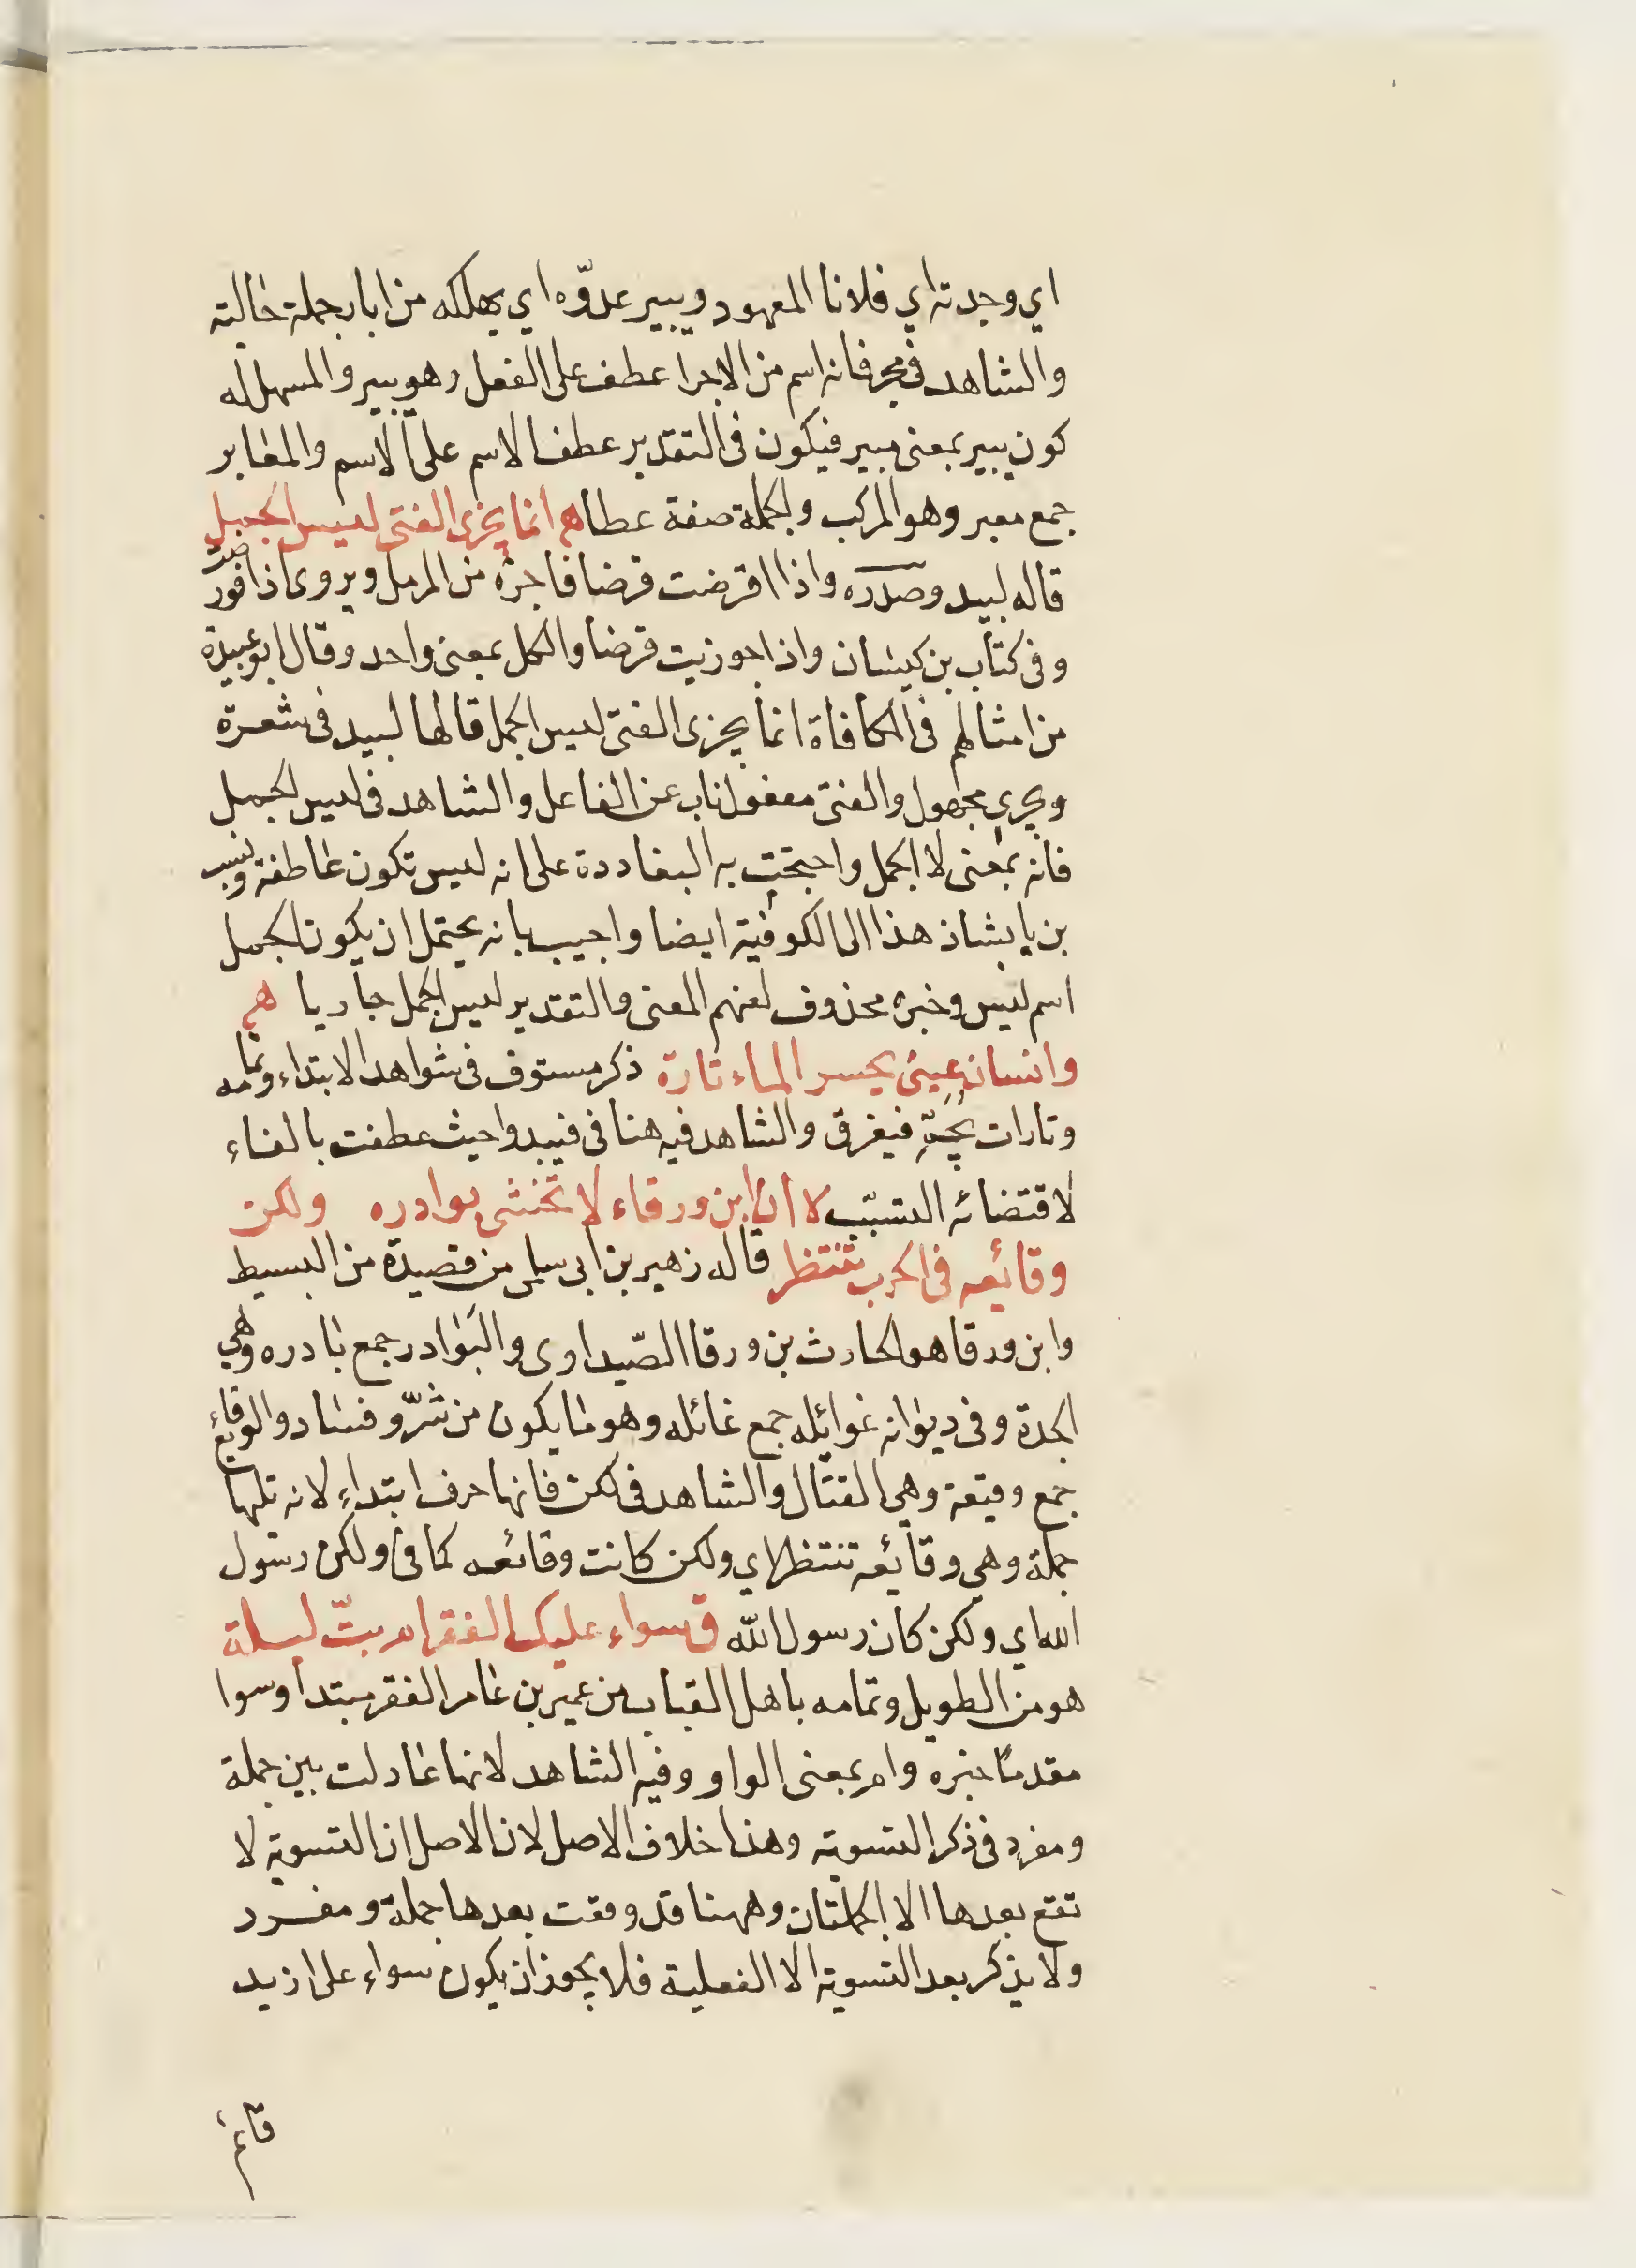 اي وجدته اي فلانا المعهود ويبير عدوّه اي يهلكه من ابار جملة حالية
والشاهد في مجر فانه اسم من الاجرا عطف على الفعل وهو يبير والمسهل له
كون يبير بمعنى مبير فيكون في التقدير عطف الاسم على الاسم والمعابر
جمع معبر وهو المركب والجملة صفة عطا هم انما يجزى الفتى ليس الجمل
قاله لبيد وصدره واذا اقرضت قرضا فاجزه من الرمل ويروى اذا قورضت
وفي كتاب بن كيسان واذا جوزيت قرضا والكل بمعنى واحد وقال ابو عبيدة
من امثالهم في المكافاة انما يجزى الفتى ليس الجمل قالها لبيد في شعره
ويجرى مجهول والفتى مفعول ناب عن الفاعل والشاهد في ليس الجمل
فانه بمعنى لا الجمل واحتجت به البغاددة على انه ليس تكون عاطفة ونسب
بن بابشاذ هذا الى الكوفية ايضا واجيب بانه يحتمل ان يكون الجمل
اسم ليس وخبره محذوف لفهم المعنى والتقدير ليس الجمل جازيا هم
وانسان عيني يحسر الماء تارة ذكر مستوف في شواهد الابتداء وتمامه
وتارات يجمّ فيغرق والشاهد فيه هنا في فيبدوا حيث عطفت بالفاء
لاقتضائه التسبّب لا ان ابن ورقاء لا تخشى بوادره ولكن
وقائعه في الحرب تنتظر قاله زهير بن ابى سلمى من قصيدة من البسيط
وابن ورقا هو الحارث بن ورقا الصّيداوى والبوادر جمع بادره وهي
الحدة وفي ديوانه غوائله جمع غائله وهو ما يكون من شرّ وفساد والوقائع
جمع وقيعة وهي القتال والشاهد في لكن فانها حرف ابتداء لانه تلها
جملة وهي وقائعه تنتظر اي ولكن كانت وقائعه كما في ولكن رسول
الله اي ولكن كان رسول الله ق سواء عليك الفقر ام بتّ ليلة
هو من الطويل وتمامه باهل القباب من عمير بن عامر الفقر مبتدا وسوا
مقدما خبره وام بمعنى الواو وفيه الشاهد لانها عادلت بين جملة
ومفرد في ذكر التسوية وهذا خلاف الاصل لان الاصل ان التسوية لا
تقع بعدها الا الجملتان وههنا قد وقعت بعدها جملة ومفرد
ولا يذكر بعد التسوية الا الفعلية فلا يجوز ان يكون سواء على ازيد
قائم